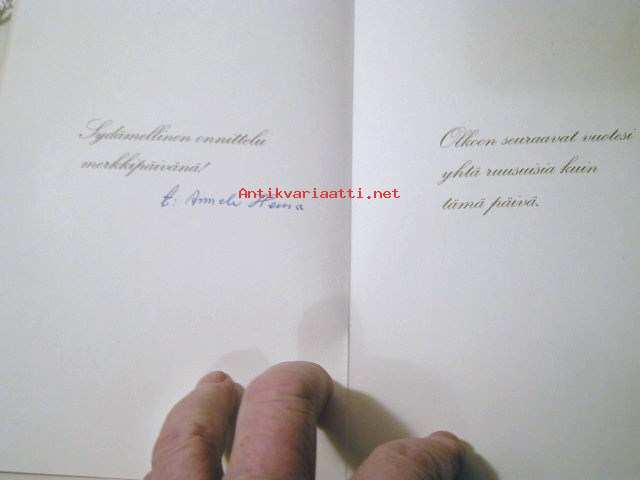 Sydämellinen onnittelu
merkkipäivänä!
Antikvariaatti.net
t: Anneli
Olkoon seuraavat vuotesi
yhtä ruusuisia kuin
tämä päivä.